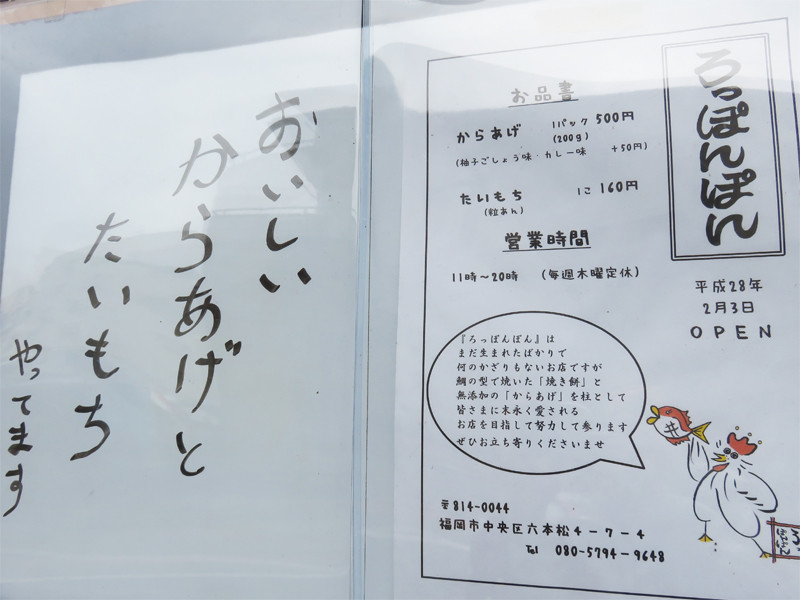 おいしい
からあげと
たいもち
やってます
ろっぽんぽん
お品書
からあげ 1パック 500円
(200g)
(柚子ごしょう味・カレー味 +50円)
たいもち 1コ 160円
(粒あん)
営業時間
11時～20時 (毎週木曜定休)
平成28年
2月3日
OPEN
『ろっぽんぽん』は
まだ生まれたばかりで
何のかざりもないお店ですが
鯛の型で焼いた「焼き餅」と
無添加の「からあげ」を柱として
皆さまに末永く愛される
お店を目指して努力して参ります
ぜひお立ち寄りくださいませ
〒814-0044
福岡市中央区六本松4-7-4
Tel 080-5794-9648